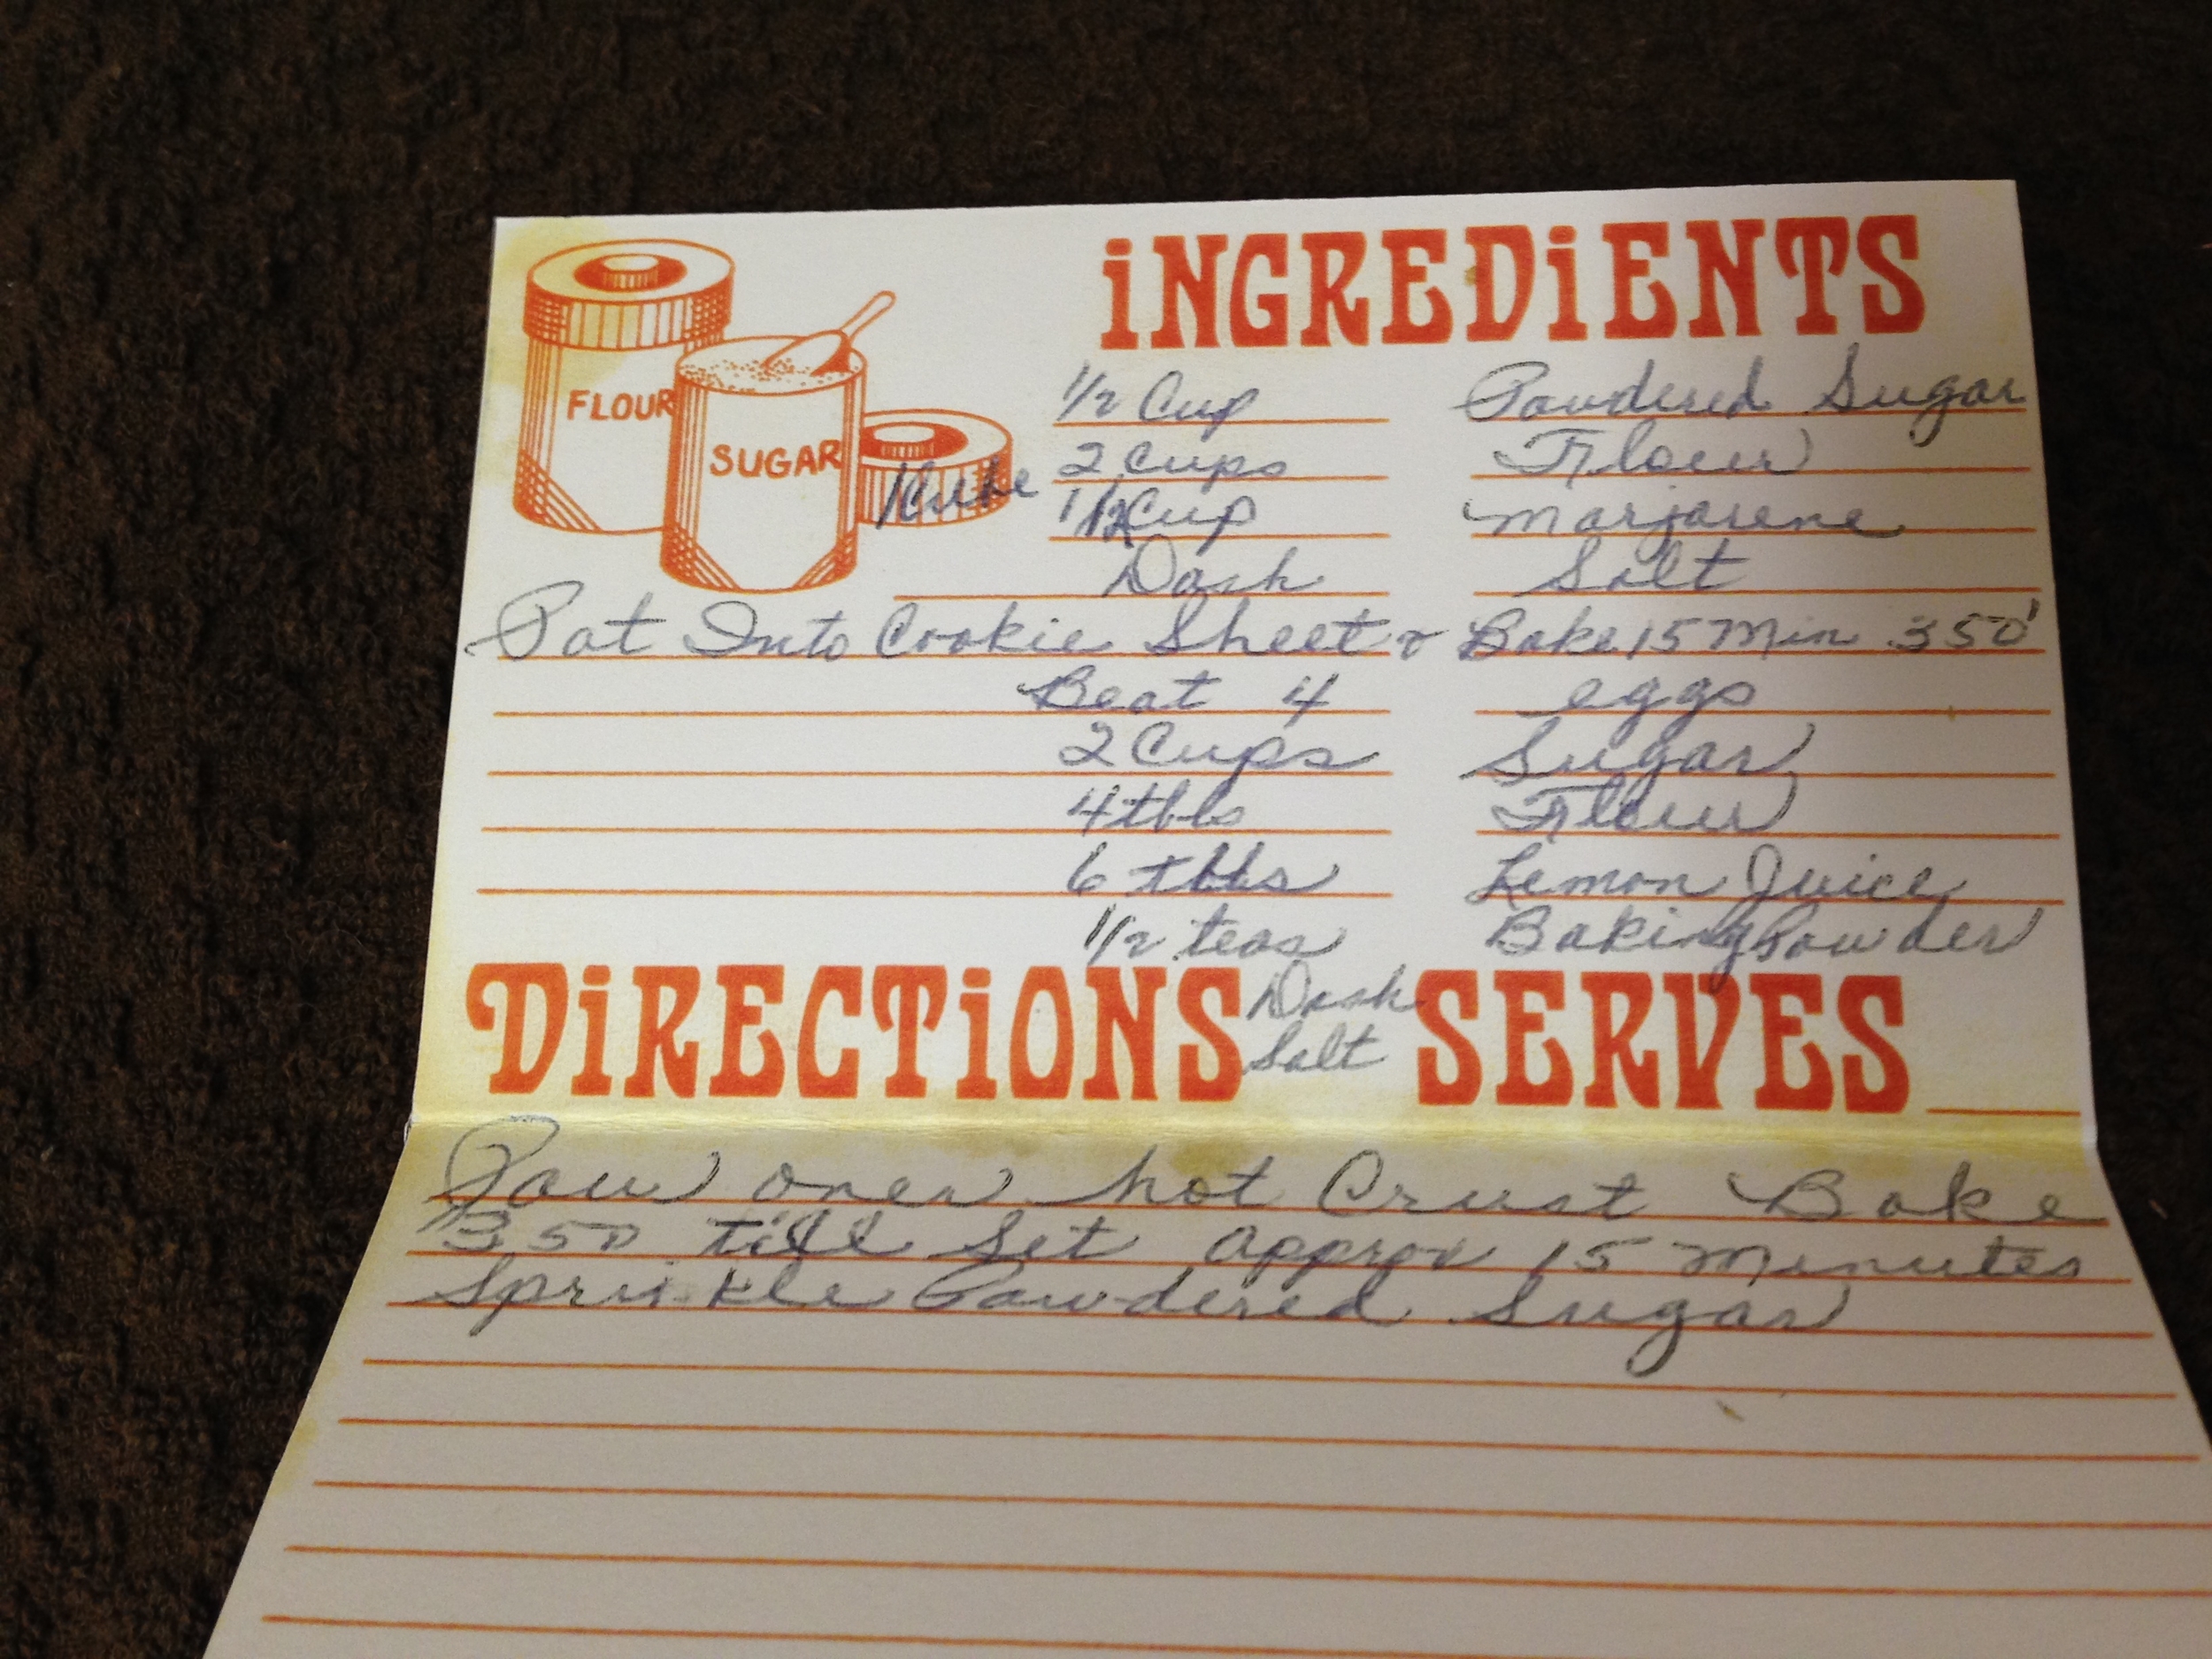 iNGREDiENTS
FLOUR
SUGAR
1/2 Cup Powdered Sugar
2 Cups Flour
1 1/2 Cup Marjarene
Dash Salt
Pat Into Cookie Sheet & Bake 15 Min 350°
Beat 4 eggs
2 Cups Sugar
4 tbls Flour
6 tbls Lemon Juice
1/2 teas Baking Powder
DiRECTiONS Dash Salt SERVES
Pour over hot Crust Bake
350 till Set Approx 15 Minutes
Sprinkle Powdered Sugar